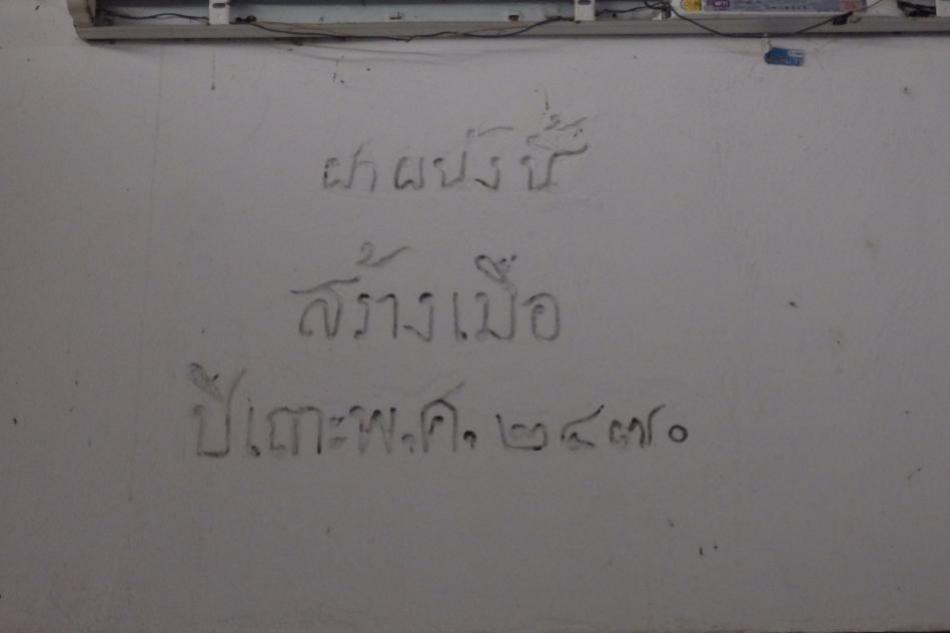 ฝาผนังนี้
สร้างเมื่อ
ปีเถาะพ.ศ.๒๔๗๐